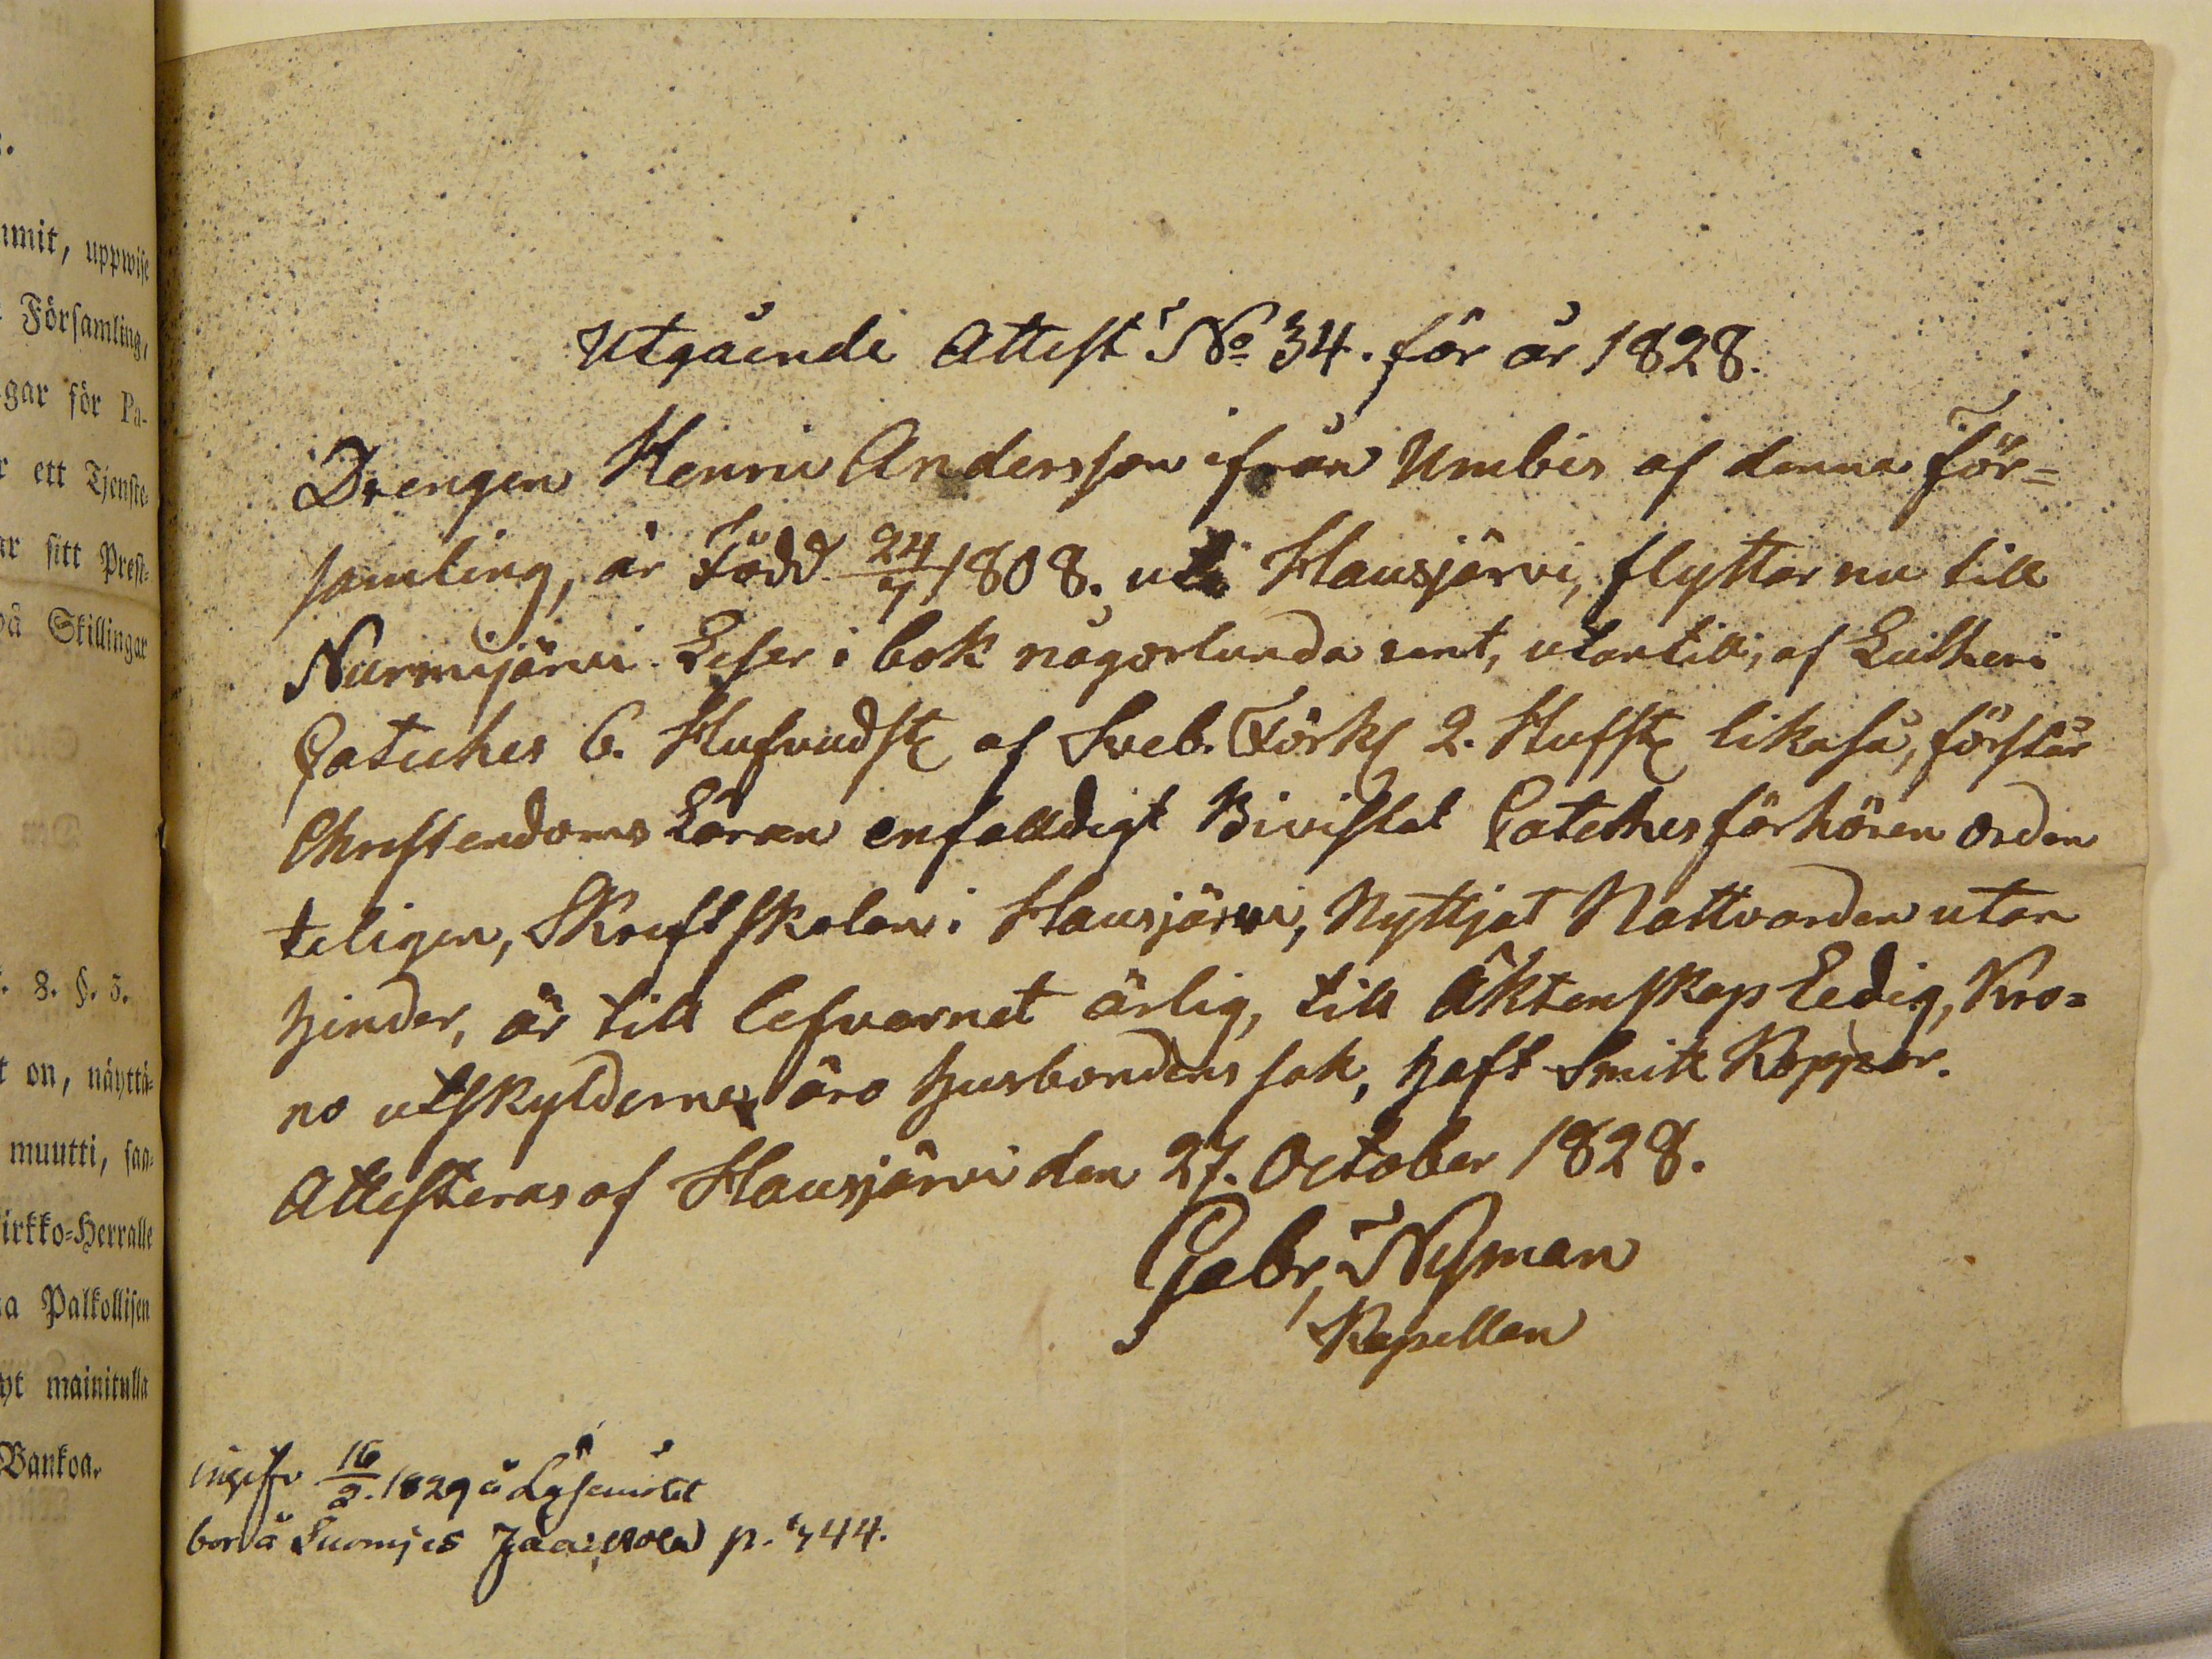 .
mit, uppwise
Församling,
gar för Pa-
r ett Tjenste-
ar sitt Prest-
på Skillingar
. 8. §. 5.
t on, näyttä-
muutti, saa-
irkko-Herralle
a Palkollisen
yt mainitulla
Bankoa.
Utgående Attest No 34. för år 1828.
Drengen Henric Andersson ifrån Umbis af denna För=
samling, är Född 24/7 1808. uti Hausjärvi, flyttar nu till
Nurmijärvi. Läser i bok någorlunda rent, utantill, af Lutheri
Cateches 6. Hufvudst af Sveb. Förkl 2. Hufst likaså, förstår
Christendoms Läran enfalldigt Bivistat Catechesförhören orden
teligen, Skriftskolan i Hausjärvi, Nyttjat Nattvarden utan
hinder, är till lefvernet ärlig, till Äktenskap Ledig, Kro=
no utskylderne äro husbondens sak, haft Smitt Koppor.
Attesteras af Hausjärvi den 27. October 1828.
Gabr, Nyman
Kapellan
16/2. 1829 å Läsemötet
bor å p. 744.